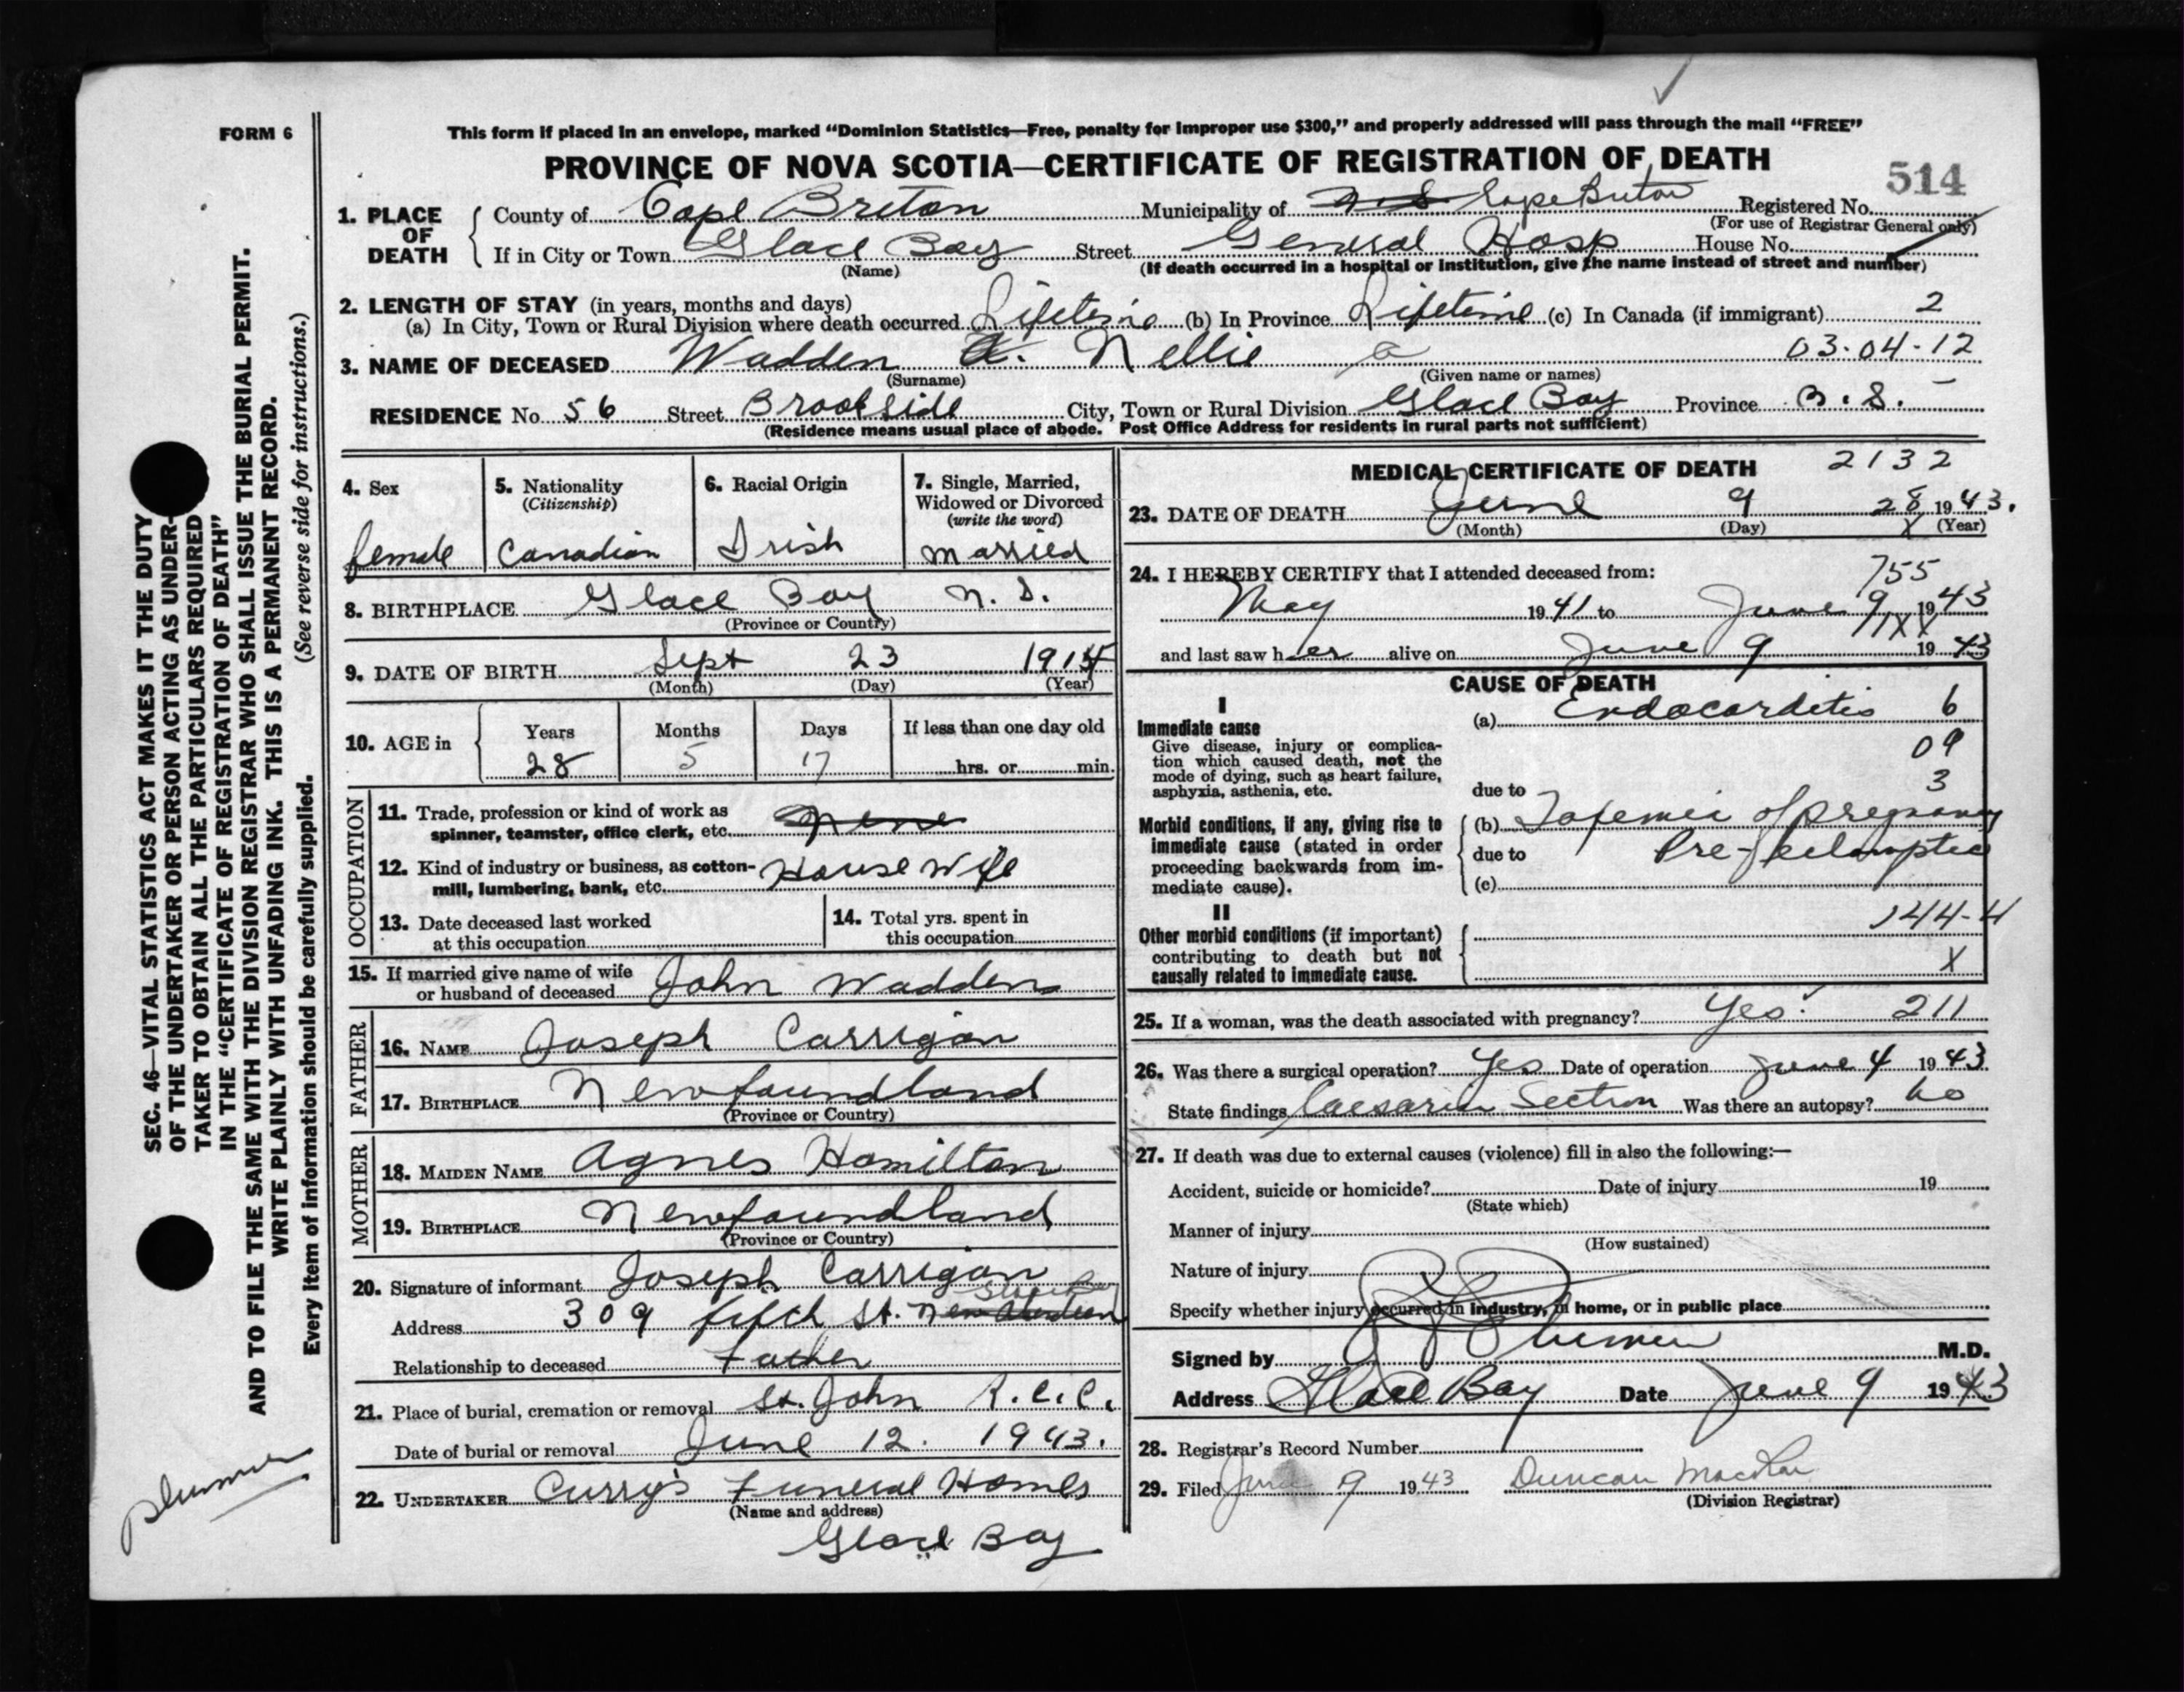 FORM 6
This form if placed in an envelope, marked “Dominion Statistics—Free, penalty for improper use $300,” and properly addressed will pass through the mail “FREE”
PROVINCE OF NOVA SCOTIA—CERTIFICATE OF REGISTRATION OF DEATH
514
1. PLACE OF DEATH
County of Cape Breton Municipality of Cape Breton Registered No.
(For use of Registrar General only)
If in City or Town Glace Bay Street General Hosp House No.
(Name) (If death occurred in a hospital or institution, give the name instead of street and number)
2. LENGTH OF STAY (in years, months and days)
(a) In City, Town or Rural Division where death occurred Lifetime (b) In Province Lifetime (c) In Canada (if immigrant) 2
3. NAME OF DECEASED Wadden A. Nellie a 03-04-12
(Surname) (Given name or names)
RESIDENCE No. 56 Street Brookside City, Town or Rural Division Glace Bay Province N. S.
(Residence means usual place of abode. Post Office Address for residents in rural parts not sufficient)
4. Sex
female
5. Nationality
(Citizenship)
Canadian
6. Racial Origin
Irish
7. Single, Married,
Widowed or Divorced
(write the word)
married
8. BIRTHPLACE Glace Bay N. S.
(Province or Country)
9. DATE OF BIRTH Sept 23 1914
(Month) (Day) (Year)
10. AGE in
Years Months Days If less than one day old
28 5 17 hrs. or min.
OCCUPATION
11. Trade, profession or kind of work as
spinner, teamster, office clerk, etc. None
12. Kind of industry or business, as cotton-
mill, lumbering, bank, etc. House Wife
13. Date deceased last worked
at this occupation
14. Total yrs. spent in
this occupation
15. If married give name of wife
or husband of deceased John Wadden
FATHER
16. NAME Joseph Carrigan
17. BIRTHPLACE Newfoundland
(Province or Country)
MOTHER
18. MAIDEN NAME Agnes Hamilton
19. BIRTHPLACE Newfoundland
(Province or Country)
20. Signature of informant Joseph Carrigan
Address 309 fifth St. New Aberdeen
Relationship to deceased Father
21. Place of burial, cremation or removal St. John R.C.C.
Date of burial or removal June 12. 1943.
22. UNDERTAKER Curry's Funeral Homes
(Name and address)
Glace Bay
MEDICAL CERTIFICATE OF DEATH 2132
23. DATE OF DEATH June 9 28 1943.
(Month) (Day) X (Year)
24. I HEREBY CERTIFY that I attended deceased from: 755
May 1941 to June 9 1943
and last saw her alive on June 9 1943
CAUSE OF DEATH
I
Immediate cause
Give disease, injury or complica-
tion which caused death, not the
mode of dying, such as heart failure,
asphyxia, asthenia, etc.
(a) Endocarditis 6
09
3
due to
Morbid conditions, if any, giving rise to
immediate cause (stated in order
proceeding backwards from im-
mediate cause).
(b) Toxemia of pregnancy
due to Pre-eclamptic
(c)
II
Other morbid conditions (if important)
contributing to death but not
causally related to immediate cause.
144-4
X
25. If a woman, was the death associated with pregnancy? Yes. 211
26. Was there a surgical operation? Yes Date of operation June 4 1943
State findings Caesarian Section Was there an autopsy? no
27. If death was due to external causes (violence) fill in also the following:—
Accident, suicide or homicide? Date of injury 19
(State which)
Manner of injury
(How sustained)
Nature of injury
Specify whether injury occurred in industry, in home, or in public place
Signed by M.D.
Address Glace Bay Date June 9 1943
28. Registrar's Record Number
29. Filed June 9 1943 Duncan MacRae
(Division Registrar)
SEC. 46—VITAL STATISTICS ACT MAKES IT THE DUTY
OF THE UNDERTAKER OR PERSON ACTING AS UNDER-
TAKER TO OBTAIN ALL THE PARTICULARS REQUIRED
IN THE “CERTIFICATE OF REGISTRATION OF DEATH”
AND TO FILE THE SAME WITH THE DIVISION REGISTRAR WHO SHALL ISSUE THE BURIAL PERMIT.
WRITE PLAINLY WITH UNFADING INK. THIS IS A PERMANENT RECORD.
Every item of information should be carefully supplied. (See reverse side for instructions.)